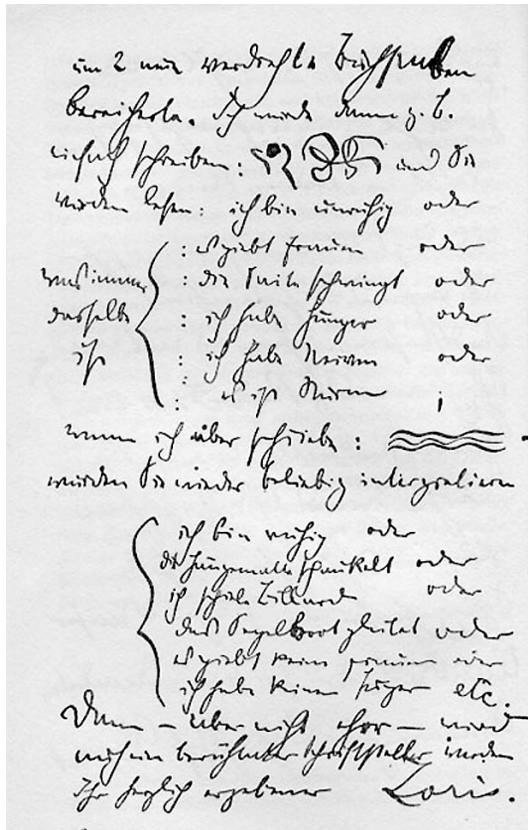 um 2 neue verdrehte Buchstaben
bereicherte. Ich werde dann z. B.
einfach schreiben: und Sie
werden lesen: ich bin unruhig oder
: es giebt Frauen oder
was immer : die Saite schwingt oder
dasselbe : ich habe Hunger oder
ist : ich habe Nerven oder
: es ist Sturm ;
wenn ich aber schriebe:
würden Sie wieder beliebig interpretieren
ich bin ruhig oder
die Hängematte schaukelt oder
ich spiele Billard oder
das Segelboot gleitet oder
es giebt keine Frauen oder
ich habe keinen Hunger etc.
Dann – aber nicht – wird
ein berühmter Schriftsteller werden
Ihr herzlich ergebener Loris.